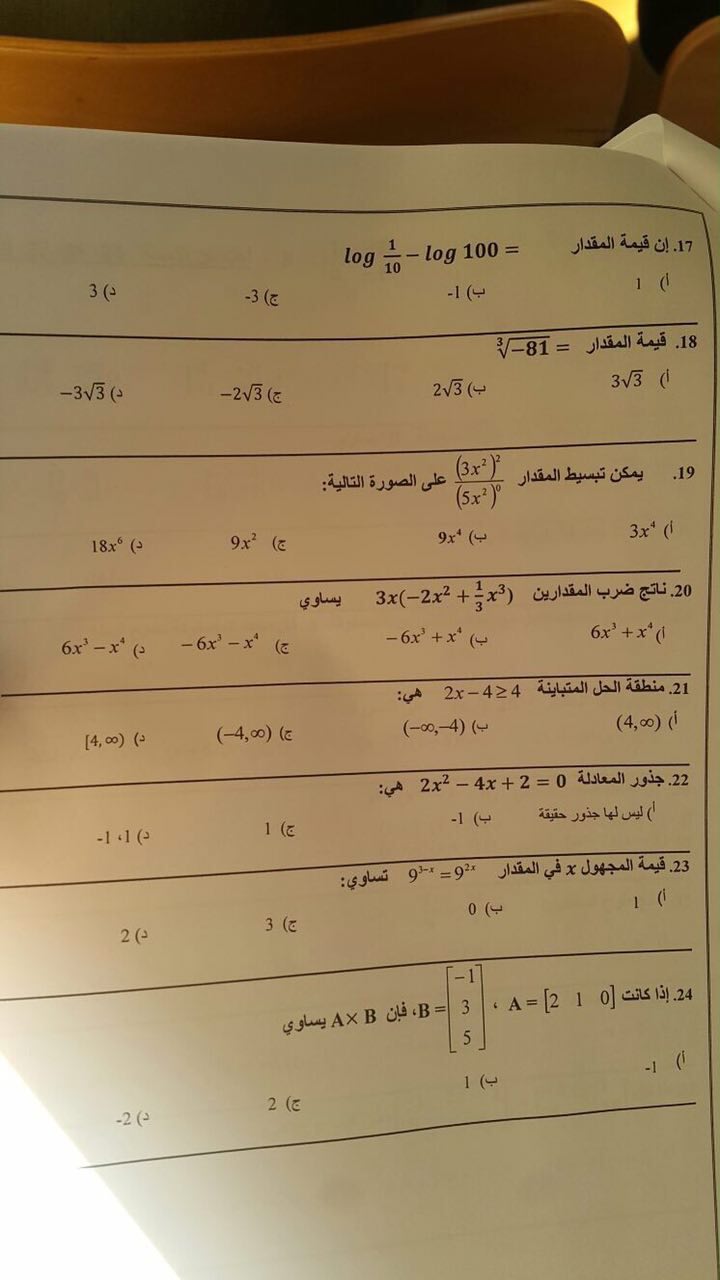 17. إن قيمة المقدار log 1/10 − log 100 =
أ) 1 ب) -1 ج) -3 د) 3
18. قيمة المقدار ∛−81 =
أ) 3√3 ب) 2√3 ج) −2√3 د) −3√3
19. يمكن تبسيط المقدار (3x²)²/(5x²)⁰ على الصورة التالية:
أ) 3x⁴ ب) 9x⁴ ج) 9x² د) 18x⁶
20. ناتج ضرب المقدارين 3x(−2x² + 1/3 x³) يساوي
أ) 6x³ + x⁴ ب) −6x³ + x⁴ ج) −6x³ − x⁴ د) 6x³ − x⁴
21. منطقة الحل المتباينة 2x − 4 ≥ 4 هي:
أ) (4,∞) ب) (−∞,−4) ج) (−4,∞) د) [4,∞)
22. جذور المعادلة 2x² − 4x + 2 = 0 هي:
أ) ليس لها جذور حقيقة ب) -1 ج) 1 د) 1، -1
23. قيمة المجهول x في المقدار 9³⁻ˣ = 9²ˣ تساوي:
أ) 1 ب) 0 ج) 3 د) 2
24. إذا كانت A = [2 1 0] ، B = [−1 3 5]، فإن A× B يساوي
أ) -1 ب) 1 ج) 2 د) -2